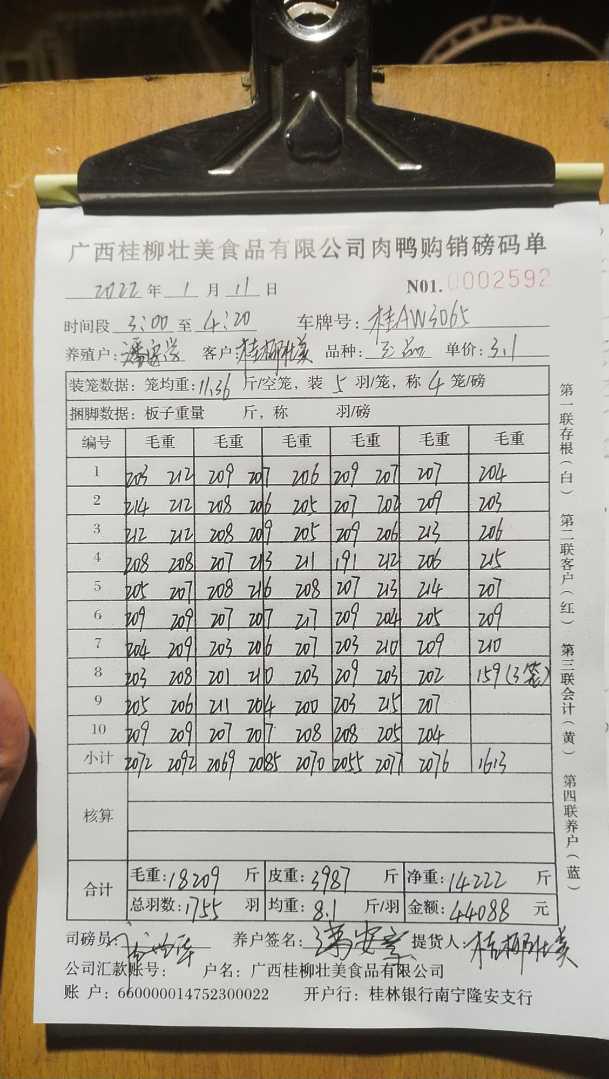 广西桂柳壮美食品有限公司肉鸭购销磅码单
2022 年 1 月 11 日 N01.0002592
时间段 3:00 至 4:20 车牌号: 桂AW3065
养殖户: 客户: 桂柳壮美 品种: 单价: 3.1
装笼数据: 笼均重: 11.36 斤/空笼, 装 5 羽/笼, 称 4 笼/磅
捆脚数据: 板子重量 斤, 称 羽/磅
编号 毛重 毛重 毛重 毛重 毛重 毛重
1 203 212 209 207 206 209 207 207 204
2 214 212 208 206 205 207 202 209 203
3 212 212 208 209 205 209 206 213 206
4 208 208 207 213 211 191 212 206 215
5 205 207 208 216 208 207 213 214 207
6 209 209 207 207 217 209 204 205 209
7 204 209 203 206 207 203 210 209 210
8 203 208 201 210 203 209 203 202 159(3笼)
9 205 206 211 204 200 203 215 207
10 209 209 207 207 208 208 205 204
小计 2072 2092 2069 2085 2070 2055 2077 2076 1613
核算
合计 毛重: 18209 斤 皮重: 3987 斤 净重: 14222 斤
总羽数: 1755 羽 均重: 8.1 斤/羽 金额: 44088 元
司磅员: 养户签名: 提货人: 桂柳壮美
公司汇款账号: 户名: 广西桂柳壮美食品有限公司
账 户: 660000014752300022 开户行: 桂林银行南宁隆安支行
第一联存根(白) 第二联客户(红) 第三联会计(黄) 第四联养户(蓝)